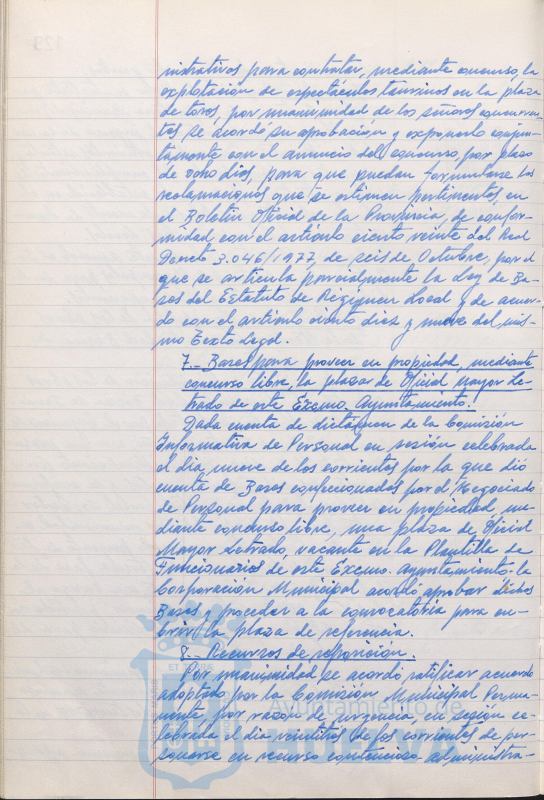 nistrativos para contratar, mediante concurso, la
explotación de espectáculos taurinos en la plaza
de toros, por unanimidad de los señores concurren-
tes se acordó su aprobación y exponerlo conjun-
tamente con el anuncio del concurso, por plazo
de ocho días, para que puedan formularse las
reclamaciones que se estimen pertinentes, en
el Boletín Oficial de la Provincia, de confor-
midad con el artículo ciento veinte del Real
Decreto 3.046/1977, de seis de Octubre, por el
que se articula parcialmente la Ley de Ba-
ses del Estatuto de Régimen Local y de acuer-
do con el artículo ciento diez y nueve del mis-
mo Texto Legal.
7.- Bases para proveer en propiedad, mediante
concurso libre, la plaza de Oficial Mayor Le-
trado de este Excmo. Ayuntamiento.
Dada cuenta de dictamen de la Comisión
Informativa de Personal en sesión celebrada
el día nueve de los corrientes por la que dio
cuenta de Bases confeccionadas por el Negociado
de Personal para proveer en propiedad, me-
diante concurso libre, una plaza de Oficial
Mayor Letrado, vacante en la Plantilla de
Funcionarios de este Excmo. Ayuntamiento, la
Corporación Municipal acordó aprobar dichas
Bases y proceder a la convocatoria para cu-
brir la plaza de referencia.
8.- Recursos de reposición.
Por unanimidad se acordó ratificar acuerdo
adoptado por la Comisión Municipal Perma-
nente, por razón de urgencia, en sesión ce-
lebrada el día veintitrés de los corrientes de per-
sonarse en recurso contencioso-administra-
Ayuntamiento de
HUELVA